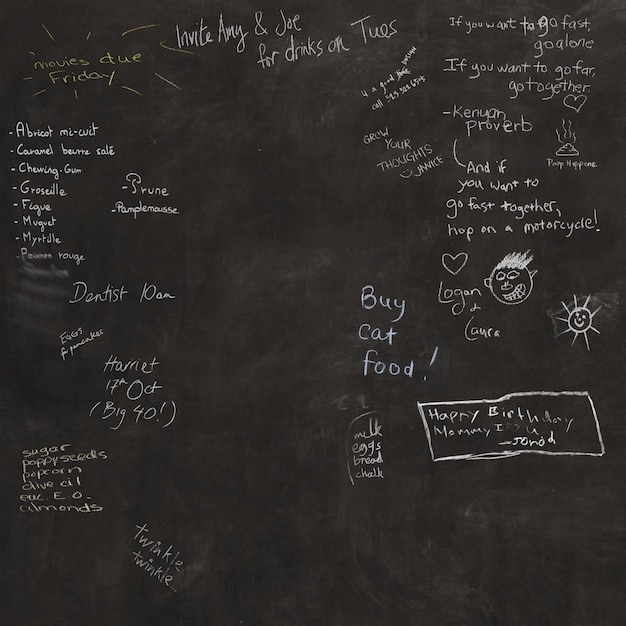 movies due
Friday
Invite Amy & Joe
for drinks on Tues
4 a good
person
call
If you want to go fast,
go alone
If you want to go far,
go together.
-Kenyan
Proverb
And if
you want to
go fast together,
hop on a motorcycle!
Poop Happens
GROW
YOUR
THOUGHTS
JANICE
- Abricot mi-cuit
- Caramel beurre salé
- Chewing-Gum
- Groseille
- Figue
- Muguet
- Myrtille
- Poivron rouge
- Prune
- Pamplemousse
Dentist 10am
Eggs
for pancakes
Harriet
17th Oct
(Big 40!)
Buy
cat
food!
Logan
&
Laura
Happy Birthday
Mommy I U
-Jonod
milk
eggs
bread
chalk
sugar
poppyseeds
popcorn
olive oil
euc. E.O.
almonds
twinkle
twinkle...